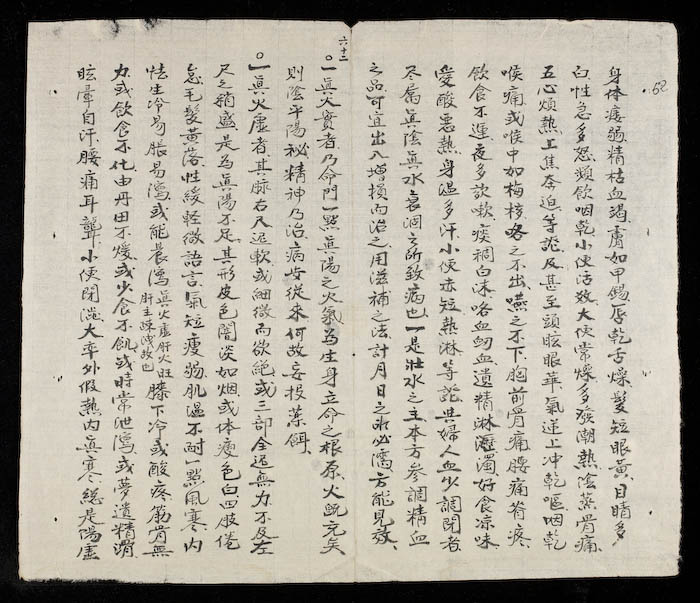 62
身体痿弱精枯血竭膚如甲錫唇乾舌燥髮短眼黃目睛多
白性急多怒頻飲咽乾小便活数大便常燥多痰潮熱陰蒸骨痛
五心煩熱上焦奔迫等症及甚至頭眩眼華氣逆上冲乾嘔咽乾
喉痛或喉中如梅核咯之不出嚥之不下胸前骨痛腰痛脊疼
飲食不運夜多欬嗽痰稠白沫咯血衂血遺精淋瀝濁好食凉味
愛酸惡熱身温多汗小便赤短熱淋等症與婦人血少調閉者
尽属真陰真水衰涸之所致病也一是壯水之主本方参調精血
之品可宜出入增損而治之用滋補之法計月日之功必濡方能見效
六十二
○一真火實者乃命門一點真陽之火氣為生身立命之根原火既充矣
則陰平陽祕精神乃治病安從來何故妄投藥餌
○一真火虛者其脉右尺迟軟或細微而欲絶或三部全迟無力不及左
尺之稍盛是為真陽不足其形皮色闇淡如烟或体瘦色白四肢倦
怠毛髮黃落性緩軽微語言氣短瘦弱肌温不耐一點風寒内
怯生冷易脹易瀉或能晨瀉真火虛肝火旺肝主疎洩故也膝下冷或酸疼筋骨無
力或飲食不化由丹田不煖或少食不飢或時常泄瀉或夢遺精滑
眩暈自汗腰痛耳聾小便閉澁大率外假熱内真寒總是傷虛